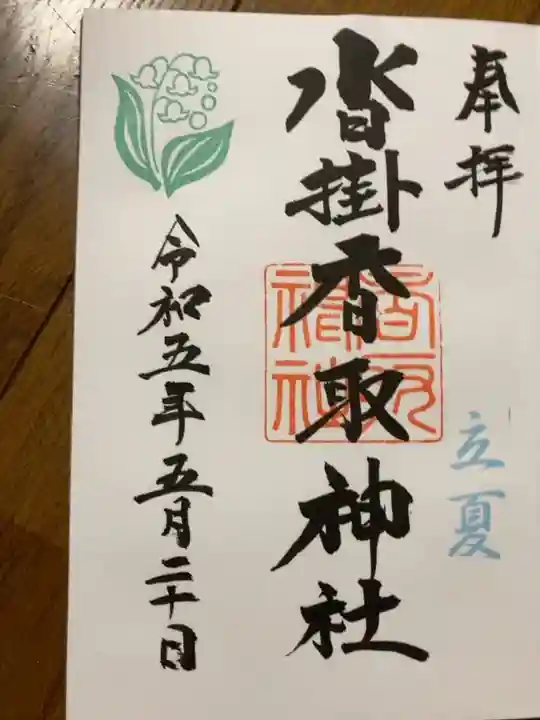 奉拝
立夏
沓掛香取神社
香取神社
令和五年五月二十日